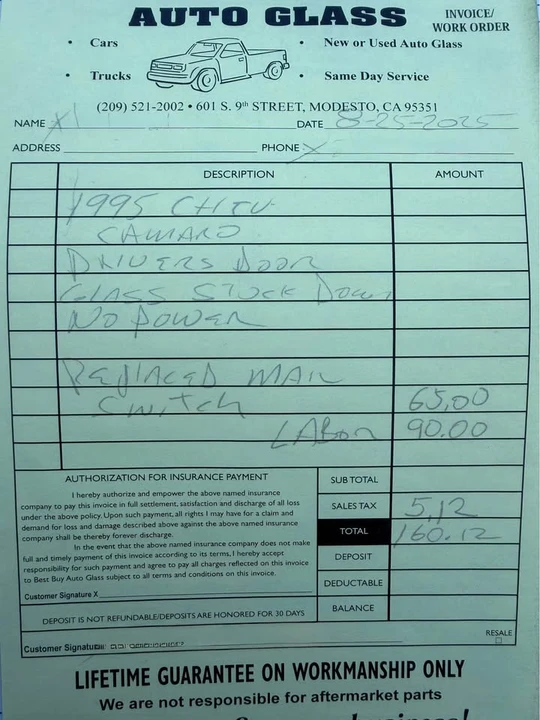 AUTO GLASS
INVOICE/
WORK ORDER
• Cars
• New or Used Auto Glass
• Trucks
• Same Day Service
(209) 521-2002 • 601 S. 9th STREET, MODESTO, CA 95351
NAME X
DATE 8-25-2025
ADDRESS
PHONE X
DESCRIPTION AMOUNT
1995 CHEV.
CAMARO
DRIVERS DOOR
GLASS STUCK DOWN
NO POWER
REPLACED MAIN
SWITCH 65.00
LABOR 90.00
AUTHORIZATION FOR INSURANCE PAYMENT
I hereby authorize and empower the above named insurance
company to pay this invoice in full settlement, satisfaction and discharge of all loss
under the above policy. Upon such payment, all rights I may have for a claim and
demand for loss and damage described above against the above named insurance
company shall be therefore forever discharge.
In the event that the above named insurance company does not make
full and timely payment of this invoice according to its terms, I hereby accept
responsibility for such payment and agree to pay all charges reflected on this invoice
to Best Buy Auto Glass subject to all terms and conditions on this invoice.
Customer Signature X
SUB TOTAL
SALES TAX 5.12
TOTAL 160.12
DEPOSIT
DEDUCTABLE
DEPOSIT IS NOT REFUNDABLE/DEPOSITS ARE HONORED FOR 30 DAYS
BALANCE
RESALE
Customer Signature
LIFETIME GUARANTEE ON WORKMANSHIP ONLY
We are not responsible for aftermarket parts
business!